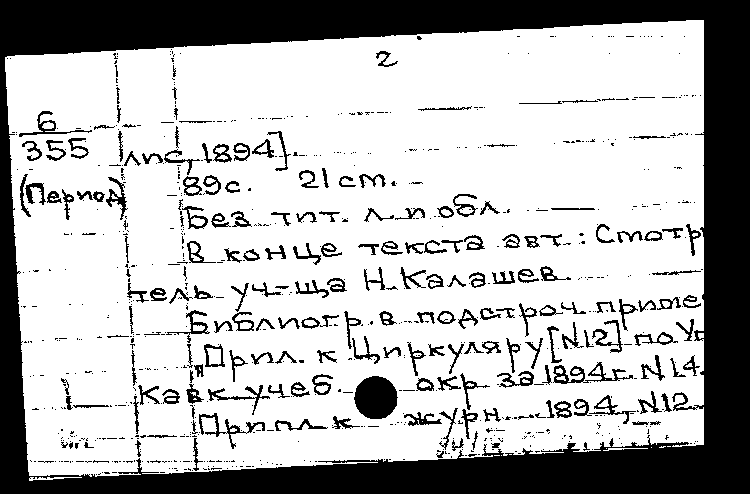 2
6
355 лис, 1894].
(Период) 89с. 21 см.
Без тит. л. и обл.
В конце текста авт.: Смотри
тель уч-ща Н. Калашев.
Библиогр. в подстроч. приме
"Прил. к Циркуляру [N12] по У
Кавк учеб. окр за 1894г. N14.
Прил к журн. 1894, N12